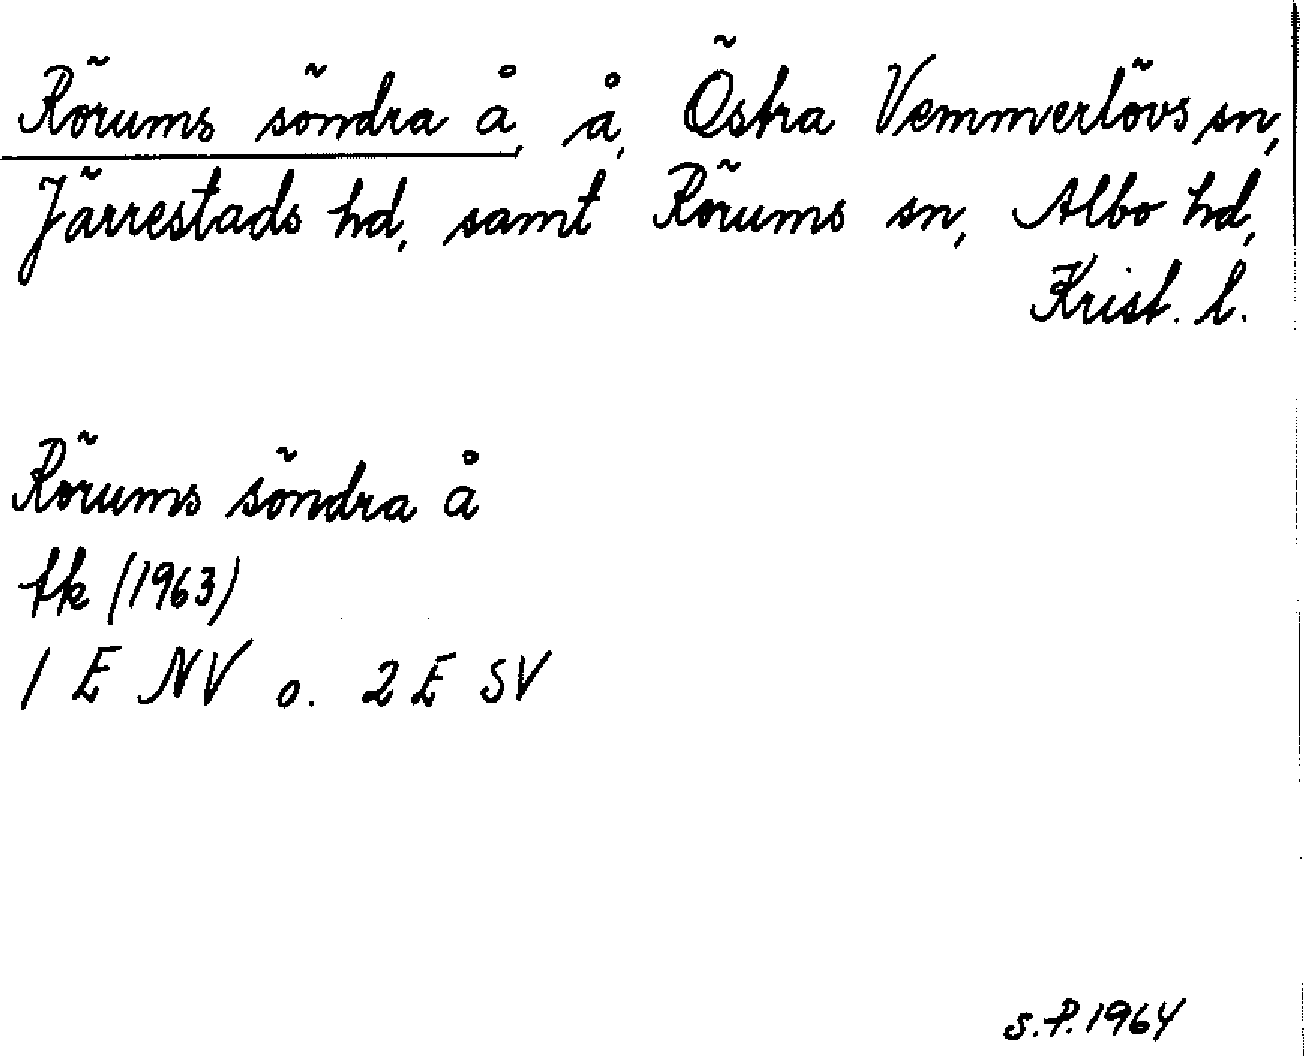 Rörums södra å, å, Östra Vemmerlövs sn,
Järrestads hd, samt Rörums sn, Albo hd,
Krist. l.
Rörums södra å
tk (1963)
1 E NV o. 2 E SV
S.P. 1964